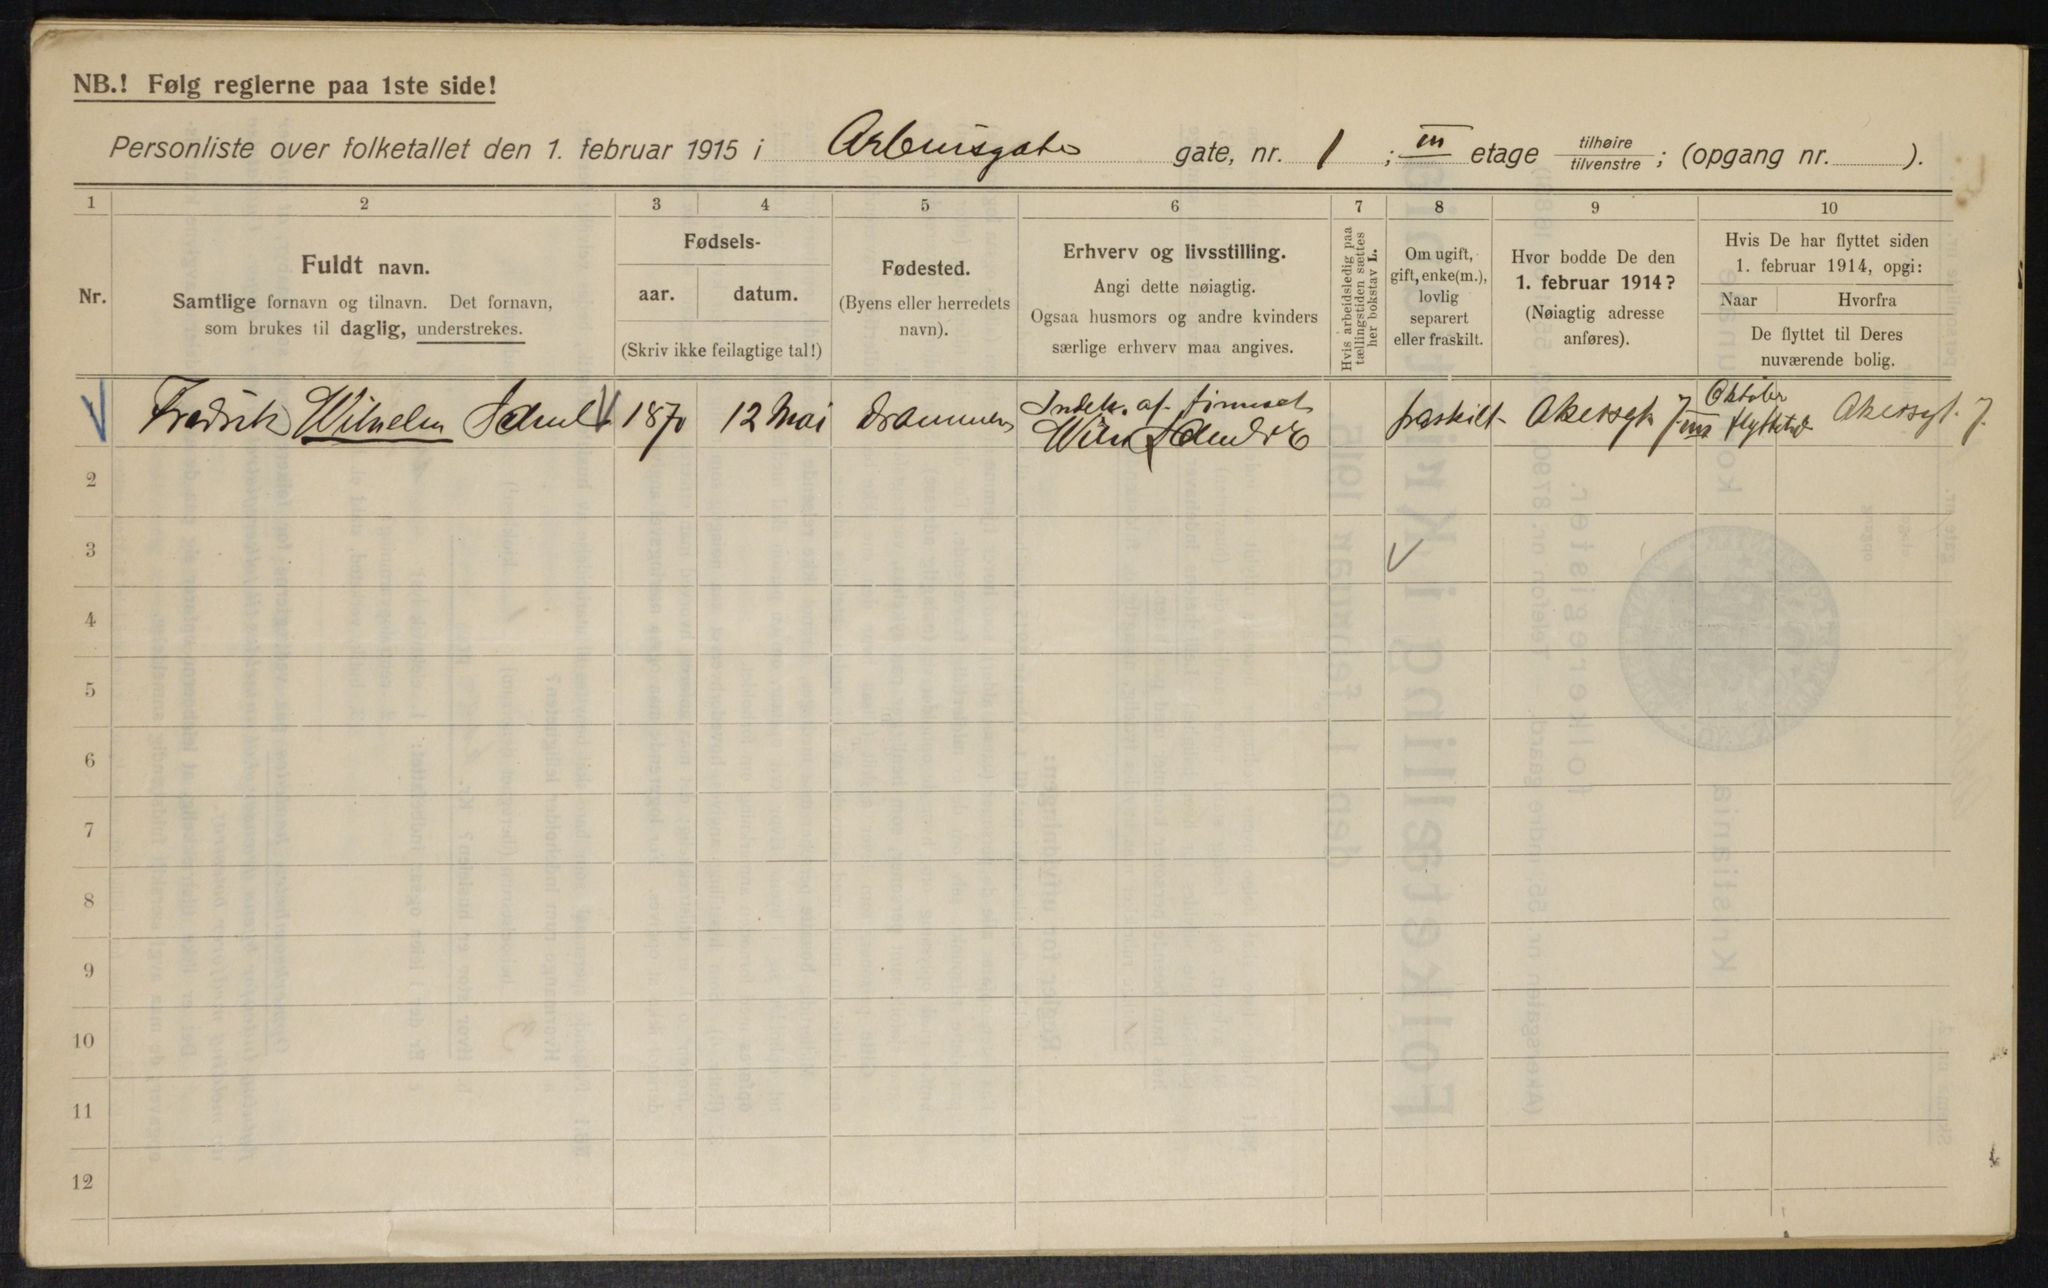 NB.! Følg reglerne paa 1ste side!
Personliste over folketallet den 1. februar 1915 i Arbinsgate gate, nr. 1 ; III etage tilhøire/tilvenstre; (opgang nr. ).
1 2 3 4 5 6 7 8 9 10
Nr.
Fuldt navn.
Samtlige fornavn og tilnavn. Det fornavn,
som brukes til daglig, understrekes.
Fødsels-
aar. datum.
(Skriv ikke feilagtige tal!)
Fødested.
(Byens eller herredets
navn).
Erhverv og livsstilling.
Angi dette nøiagtig.
Ogsaa husmors og andre kvinders
særlige erhverv maa angives.
Hvis arbeidsledig paa
tællingstiden sættes
her bokstav L.
Om ugift,
gift, enke(m.),
lovlig
separert
eller fraskilt.
Hvor bodde De den
1. februar 1914?
(Nøiagtig adresse
anføres).
Hvis De har flyttet siden
1. februar 1914, opgi:
Naar Hvorfra
De flyttet til Deres
nuværende bolig.
Fredrik Wilhelm 1870 12 Mai Drammen Indeh. af firmaet fraskilt Akersgt. 7 III Oktober flyttet Akersgt. 7.
Wilh
2
3
4
5
6
7
8
9
10
11
12